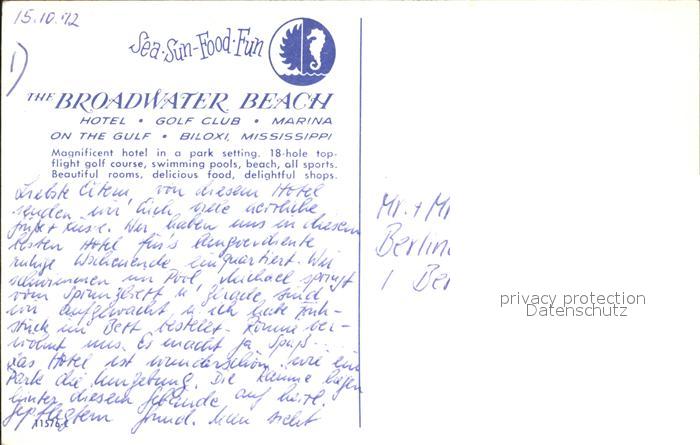 15.10.72
1)
Sea-Sun-Food-Fun
THE BROADWATER BEACH
HOTEL • GOLF CLUB • MARINA
ON THE GULF • BILOXI, MISSISSIPPI
Magnificent hotel in a park setting. 18-hole top-
flight golf course, swimming pools, beach, all sports.
Beautiful rooms, delicious food, delightful shops.
Liebste Eltern, von diesem Hotel
senden wir Euch viele herrliche
Grüße + Küsse. Wir haben uns in diesem
besten Hotel für's langverdiente
ruhige Wochenende einquartiert. Wir
schwimmen im Pool, Michael springt
vom Sprungbrett u. gerade sind
wir aufgewacht u. ich habe Früh-
stück im Bett bestellt. Komme ver-
wöhnt uns. Es macht ja Spaß...
Das Hotel ist wunderschön, wie ein
Park die Umgebung. Die Räume liegen
hinter diesem Gebäude auf
gepflegtem Grund. Man sieht
11576-C
Mr. + Mr
Berlin
1 Ber
privacy protection
Datenschutz